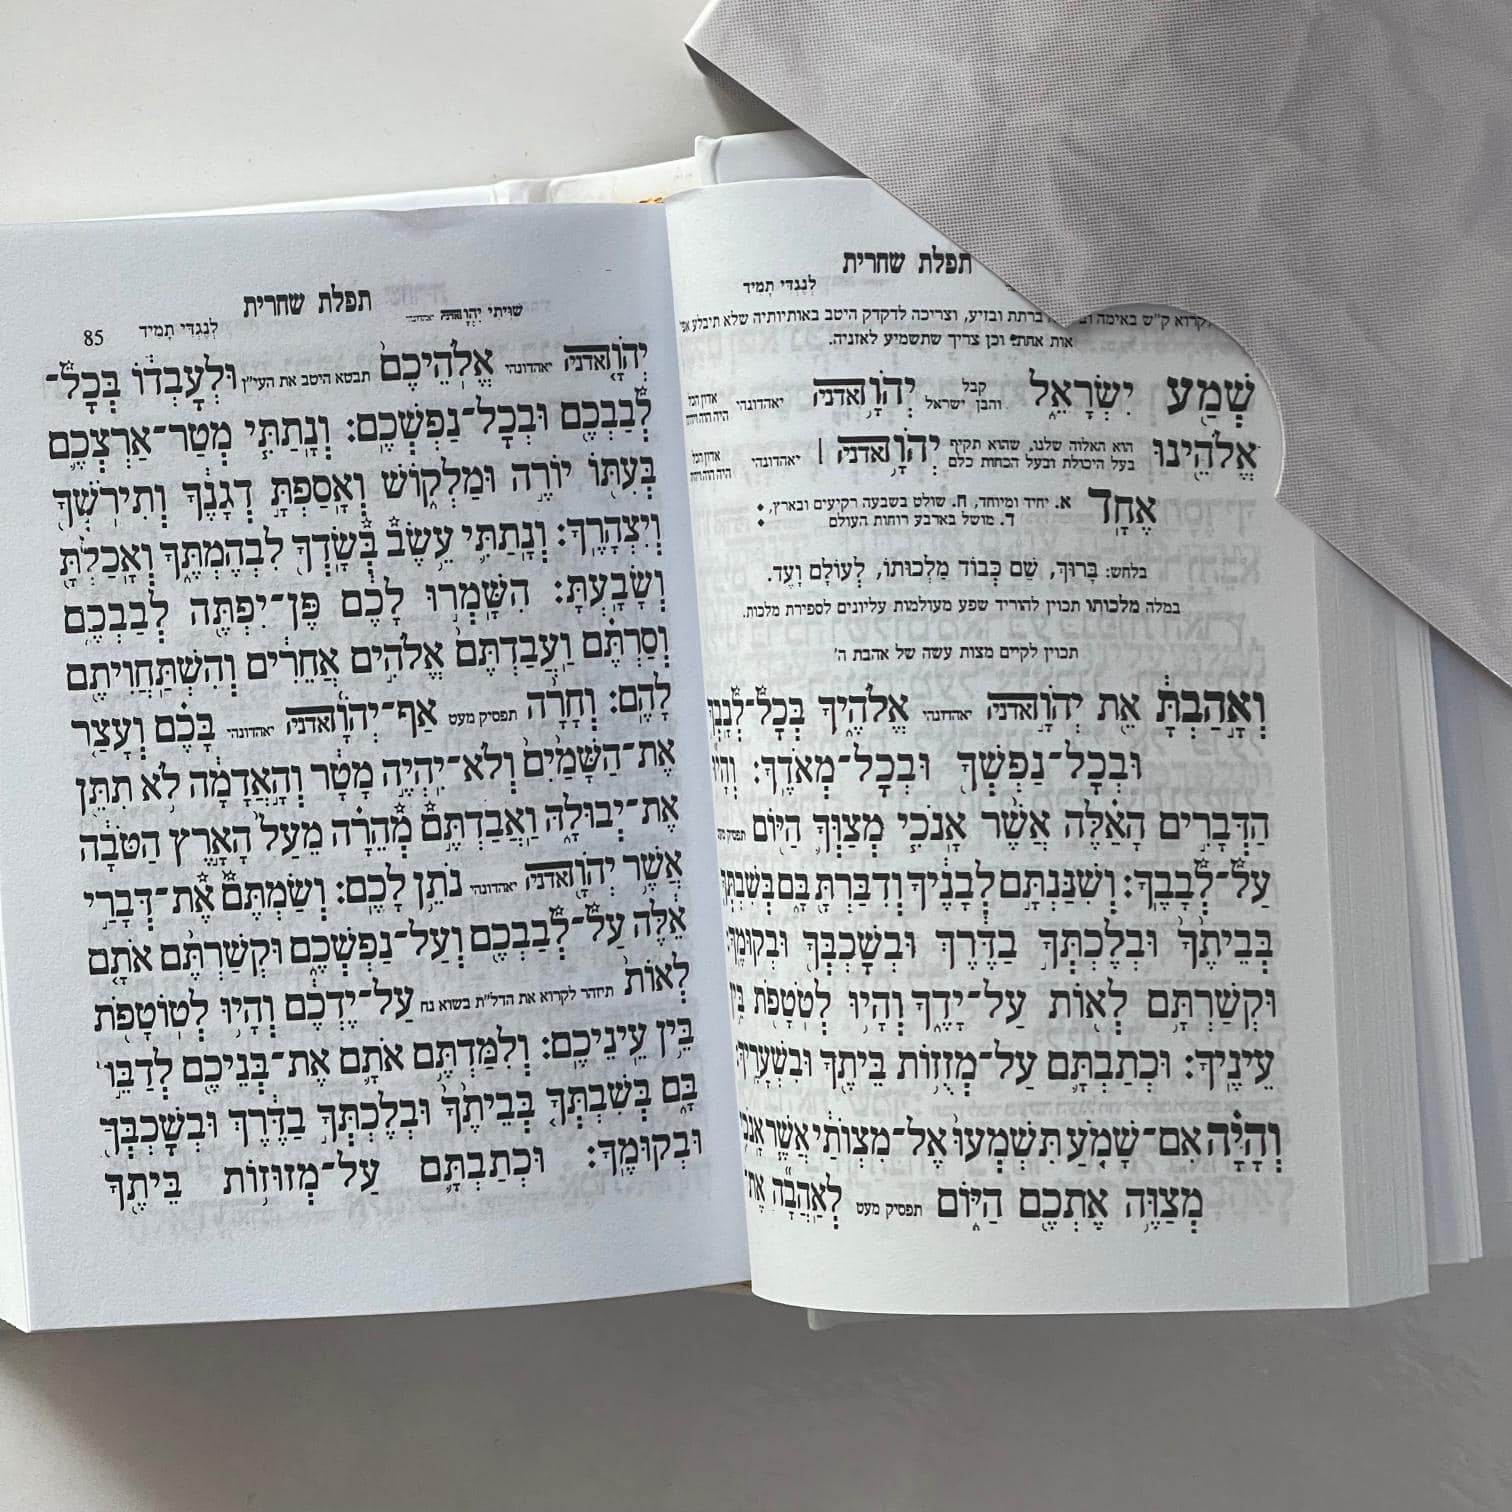 תפלת שחרית
לְנֶגְדִּי תָמִיד
לקרוא ק״ש באימה ברתת ובזיע, וצריכה לדקדק היטב באותיותיה שלא תיבלע אפי
אות אחת. וכן צריך שתשמיע לאזניה.
שְׁמַע יִשְׂרָאֵל קבל והבן ישראל יְהֹוָה אדני יאהדונהי אדון הכל היה הוה ויהיה
אֱלֹהֵינוּ הוא האלוה שלנו, שהוא תקיף בעל היכולת ובעל הכחות כלם יְהֹוָה אדני | יאהדונהי אדון הכל היה הוה ויהיה
אֶחָד א. יחיד ומיוחד, ח. שולט בשבעה רקיעים ובארץ, ד. מושל בארבע רוחות העולם
בלחש: בָּרוּךְ, שֵׁם כְּבוֹד מַלְכוּתוֹ, לְעוֹלָם וָעֶד.
במלה מלכותו תכוין להוריד שפע מעולמות עליונים לספירת מלכות.
תכוין לקיים מצות עשה של אהבת ה׳
וְאָהַבְתָּ אֵת יְהֹוָה אדני יאהדונהי אֱלֹהֶיךָ בְּכׇל־לְבָבְךָ
וּבְכׇל־נַפְשְׁךָ וּבְכׇל־מְאֹדֶךָ: וְהָיוּ
הַדְּבָרִים הָאֵלֶּה אֲשֶׁר אָנֹכִי מְצַוְּךָ הַיּוֹם תפסיק מעט
עַל־לְבָבֶךָ: וְשִׁנַּנְתָּם לְבָנֶיךָ וְדִבַּרְתָּ בָּם בְּשִׁבְתְּךָ
בְּבֵיתֶךָ וּבְלֶכְתְּךָ בַדֶּרֶךְ וּבְשׇׁכְבְּךָ וּבְקוּמֶךָ:
וּקְשַׁרְתָּם לְאוֹת עַל־יָדֶךָ וְהָיוּ לְטֹטָפֹת בֵּין
עֵינֶיךָ: וּכְתַבְתָּם עַל־מְזֻזוֹת בֵּיתֶךָ וּבִשְׁעָרֶיךָ:
וְהָיָה אִם־שָׁמֹעַ תִּשְׁמְעוּ אֶל־מִצְוֺתַי אֲשֶׁר אָנֹכִי
מְצַוֶּה אֶתְכֶם הַיּוֹם תפסיק מעט לְאַהֲבָה אֶת־
תפלת שחרית
שויתי יְהֹוָה אדני יאהדונהי לְנֶגְדִּי תָמִיד 85
יְהֹוָה אדני יאהדונהי אֱלֹהֵיכֶם תבטא היטב את העי״ן וּלְעׇבְדוֹ בְּכׇל־
לְבַבְכֶם וּבְכׇל־נַפְשְׁכֶם: וְנָתַתִּי מְטַר־אַרְצְכֶם
בְּעִתּוֹ יוֹרֶה וּמַלְקוֹשׁ וְאָסַפְתָּ דְגָנֶךָ וְתִירֹשְׁךָ
וְיִצְהָרֶךָ: וְנָתַתִּי עֵשֶׂב בְּשָׂדְךָ לִבְהֶמְתֶּךָ וְאָכַלְתָּ
וְשָׂבָעְתָּ: הִשָּׁמְרוּ לָכֶם פֶּן־יִפְתֶּה לְבַבְכֶם
וְסַרְתֶּם וַעֲבַדְתֶּם אֱלֹהִים אֲחֵרִים וְהִשְׁתַּחֲוִיתֶם
לָהֶם: וְחָרָה תפסיק מעט אַף־יְהֹוָה אדני יאהדונהי בָּכֶם וְעָצַר
אֶת־הַשָּׁמַיִם וְלֹא־יִהְיֶה מָטָר וְהָאֲדָמָה לֹא תִתֵּן
אֶת־יְבוּלָהּ וַאֲבַדְתֶּם מְהֵרָה מֵעַל הָאָרֶץ הַטֹּבָה
אֲשֶׁר יְהֹוָה אדני יאהדונהי נֹתֵן לָכֶם: וְשַׂמְתֶּם אֶת־דְּבָרַי
אֵלֶּה עַל־לְבַבְכֶם וְעַל־נַפְשְׁכֶם וּקְשַׁרְתֶּם אֹתָם
לְאוֹת תיזהר לקרוא את הדל״ת בשוא נח עַל־יֶדְכֶם וְהָיוּ לְטוֹטָפֹת
בֵּין עֵינֵיכֶם: וְלִמַּדְתֶּם אֹתָם אֶת־בְּנֵיכֶם לְדַבֵּר
בָּם בְּשִׁבְתְּךָ בְּבֵיתֶךָ וּבְלֶכְתְּךָ בַדֶּרֶךְ וּבְשׇׁכְבְּךָ
וּבְקוּמֶךָ: וּכְתַבְתָּם עַל־מְזוּזוֹת בֵּיתֶךָ